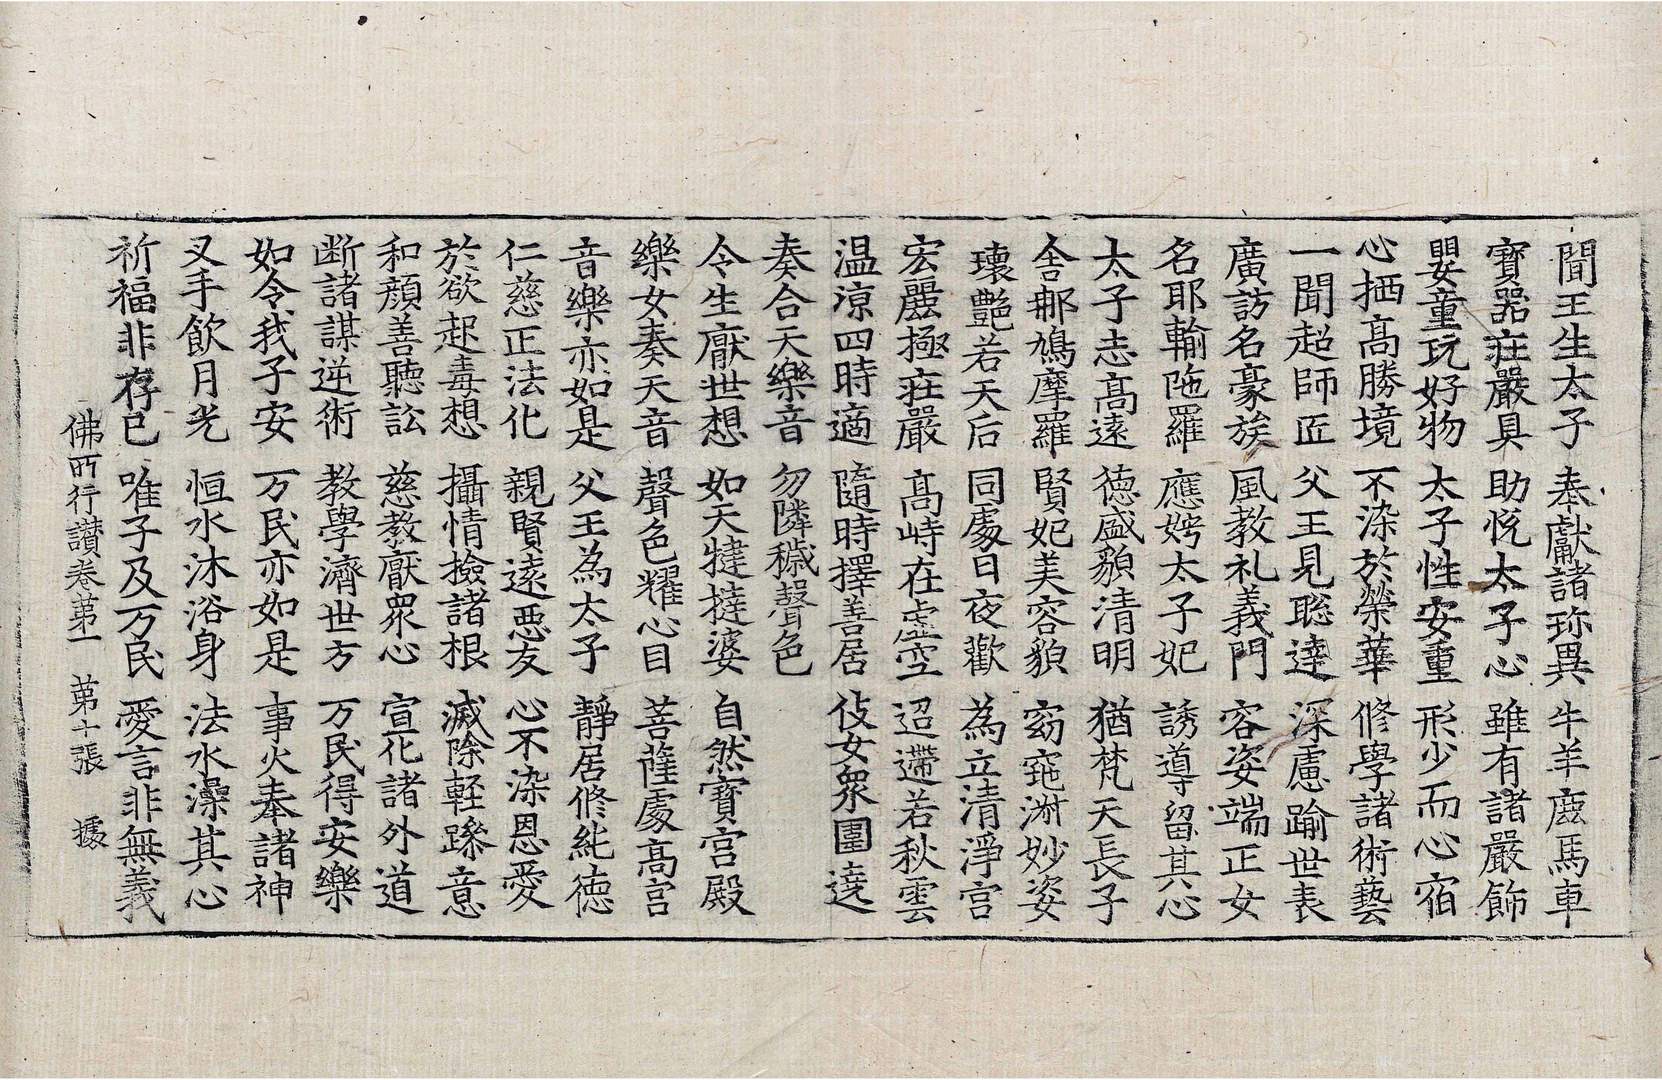 聞王生太子 奉獻諸珎異 牛羊鹿馬車
寶器莊嚴具 助悅太子心 雖有諸嚴飾
嬰童玩好物 太子性安重 形少而心宿
心栖高勝境 不染於榮華 修學諸術藝
一聞超師匠 父王見聡達 深慮踰世表
廣訪名豪族 風教礼義門 容姿端正女
名耶輸陁羅 應娉太子妃 誘導留其心
太子志高遠 德盛貌清明 猶梵天長子
舍那鳩摩羅 賢妃美容貌 窈窕淑妙姿
瓌艷若天后 同處日夜歡 為立清淨宮
宏麗極莊嚴 高峙在虛空 迢遰若秋雲
温涼四時適 隨時擇善居 伎女衆圍遶
奏合天樂音 勿隣穢聲色
令生厭世想 如天揵撻婆 自然寶宮殿
樂女奏天音 聲色耀心目 菩薩處高宮
音樂亦如是 父王為太子 靜居修純德
仁慈正法化 親賢遠惡友 心不染恩愛
於欲起毒想 攝情撿諸根 滅除輕躁意
和顏善聽訟 慈教厭衆心 宣化諸外道
斷諸謀逆術 教學濟世方 万民得安樂
如令我子安 万民亦如是 事火奉諸神
叉手飲月光 恒水沐浴身 法水澡其心
祈福非存已 唯子及万民 愛言非無義
佛所行讚卷第一 第十張 據